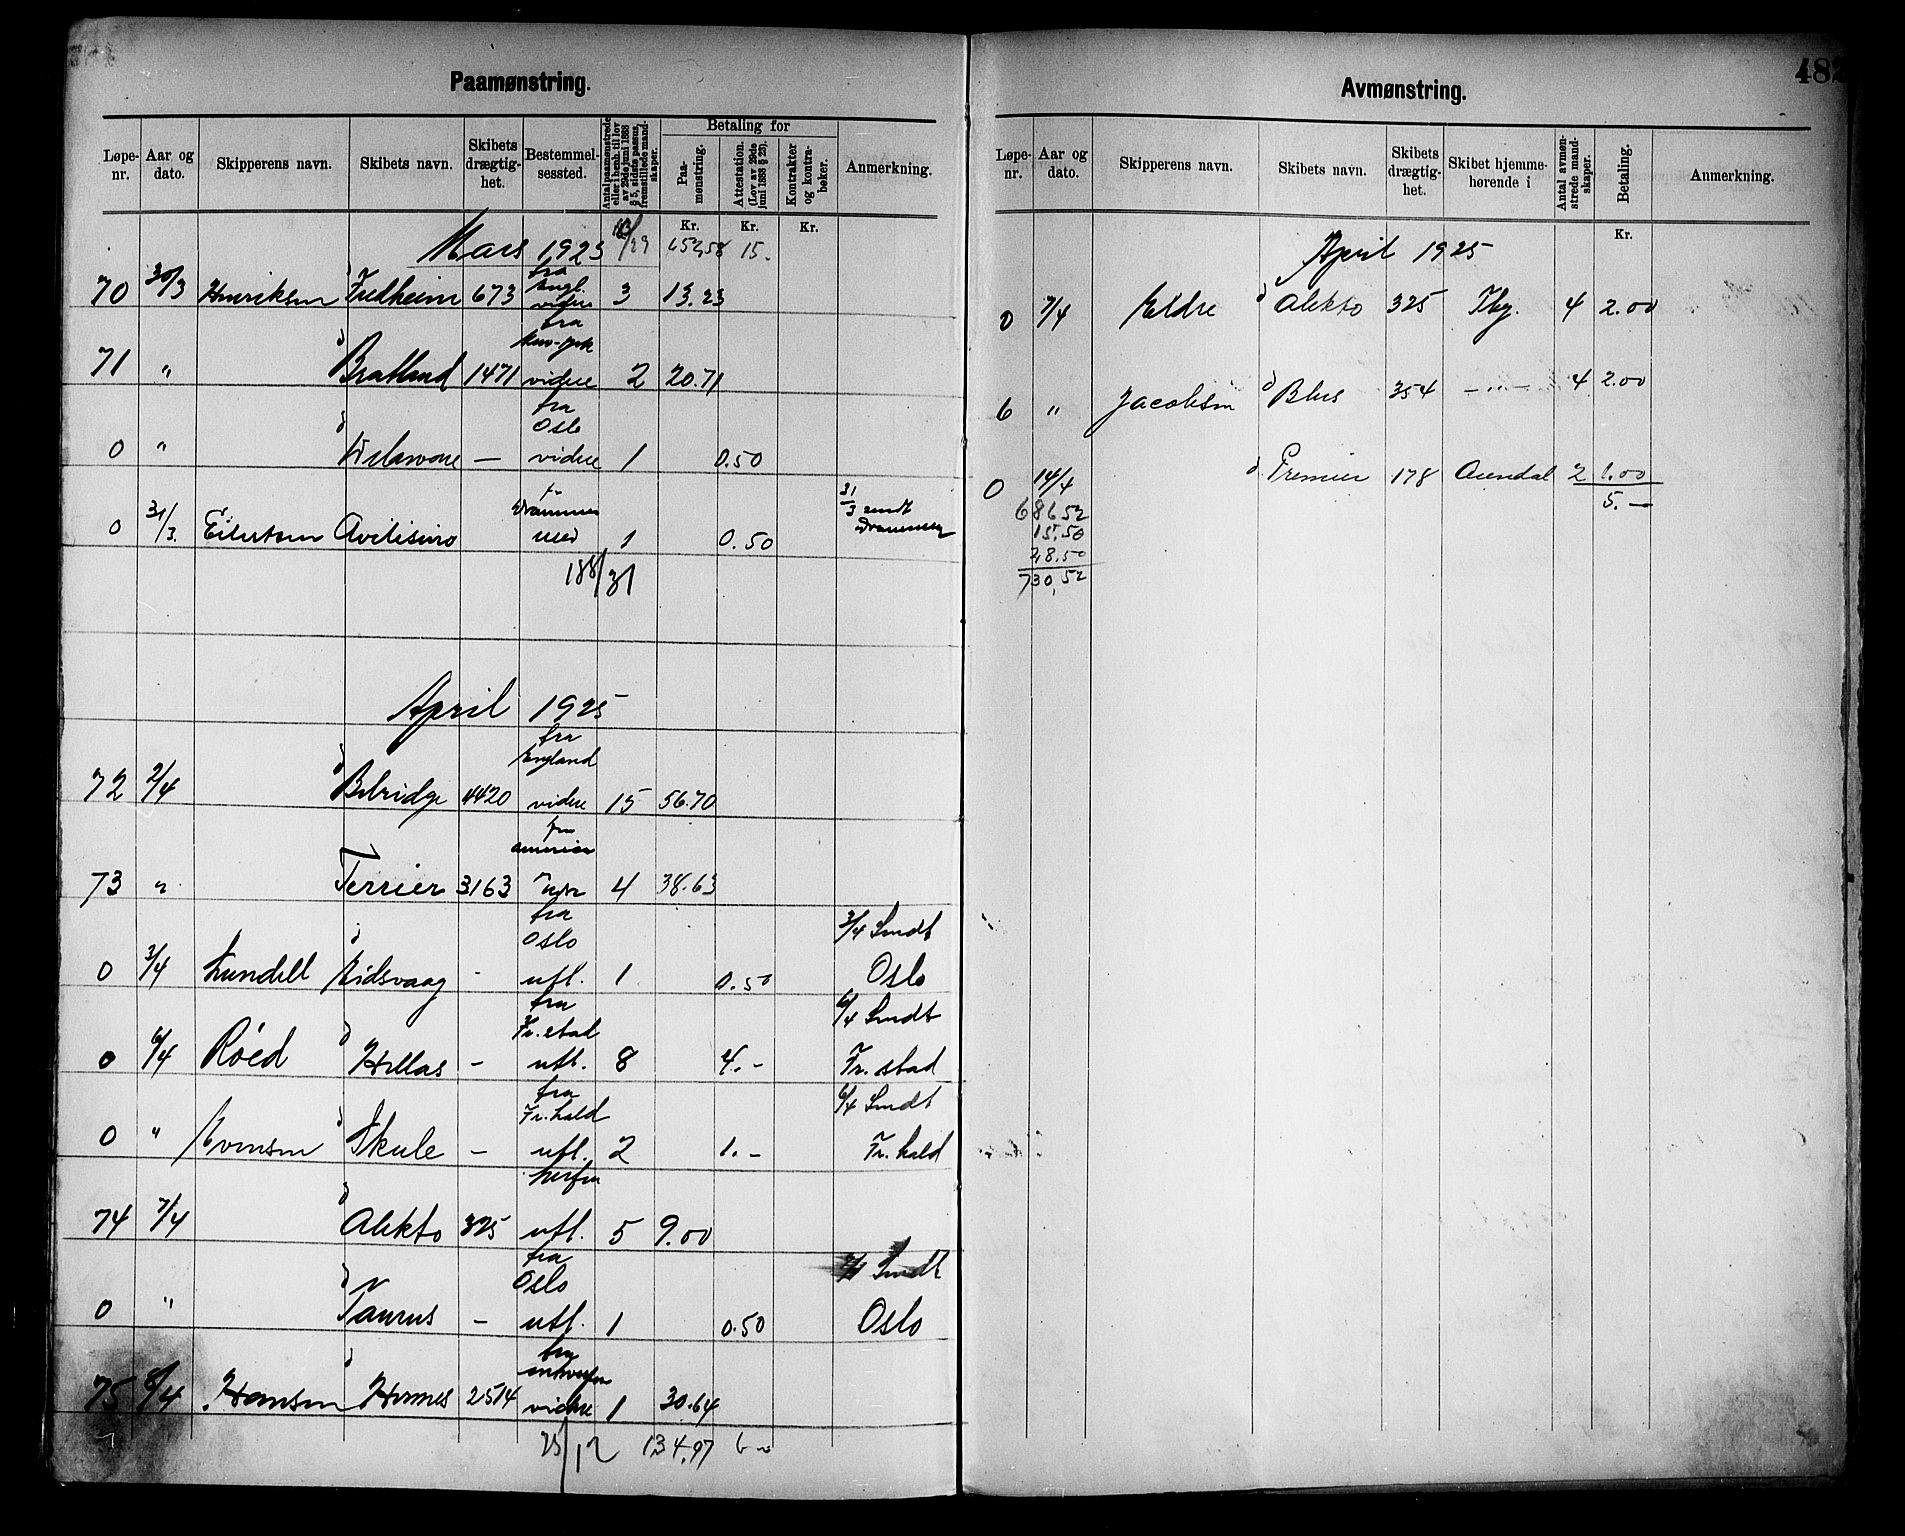 Paamønstring.
Løpe-nr. Aar og dato. Skipperens navn. Skibets navn. Skibets drægtig-het. Bestemmel-sessted. Antal paamønstrede eller i henh. til lov av 29de juni 1888 § 5, sidste passus, fremstillede mand-skaper. Betaling for Paa-mønstring. Attestation. (Lov av 29de juni 1888 § 23). Kontrakter og kontra-bøker. Anmerkning.
Kr. Kr. Kr.
Mars 1925 /29 653,58 15.
70 30/3 Henriksen Fredheim 673 fra Engl. videre 3 13.23
71 " Bratland 1471 fra videre 2 20.71
0 " – fra Oslo videre 1 0.50
0 31/3. Eilertsen Drammen 1 0.50 31/3 sendt Drammen
188/31
April 1925
72 2/4 Belridge 4420 fra England videre 15 56.70
73 " Terrier 3163 fra America 4 38.63
0 3/4 Lundell Eidsvaag - fra Oslo utl. 1 0.50 3/4 Sendt Oslo
0 6/4 Röed Hellas – fra Fr.stad utl. 8 4.– 6/4 Sendt Fr. stad
0 " Evensen Skule – fra Fr.hald utl. 2 1.– 6/4 Sendt Fr. hald
74 7/4 Alekto 325 herfra utl. 5 9.00
0 " Taurus – fra Oslo utl. 1 0.50 7/4 Sendt Oslo
75 8/4 Hansen Hermes 2514 fra Antwerpen videre 1 30.64
25/12 134.97
Avmønstring.
482
Løpe-nr. Aar og dato. Skipperens navn. Skibets navn. Skibets drægtig-het. Skibet hjemme-hørende i Antal avmøn-strede mand-skaper. Betaling. Anmerkning.
Kr.
April 1925
0 7/4 Eldre Alekto 325 Tbg. 4 2.00
6 " Jacobsen 354 – " – 4 2.00
0 14/4 Premier 178 Arendal 2 1.00
5.–
686 52
15.50
28.50
730,52